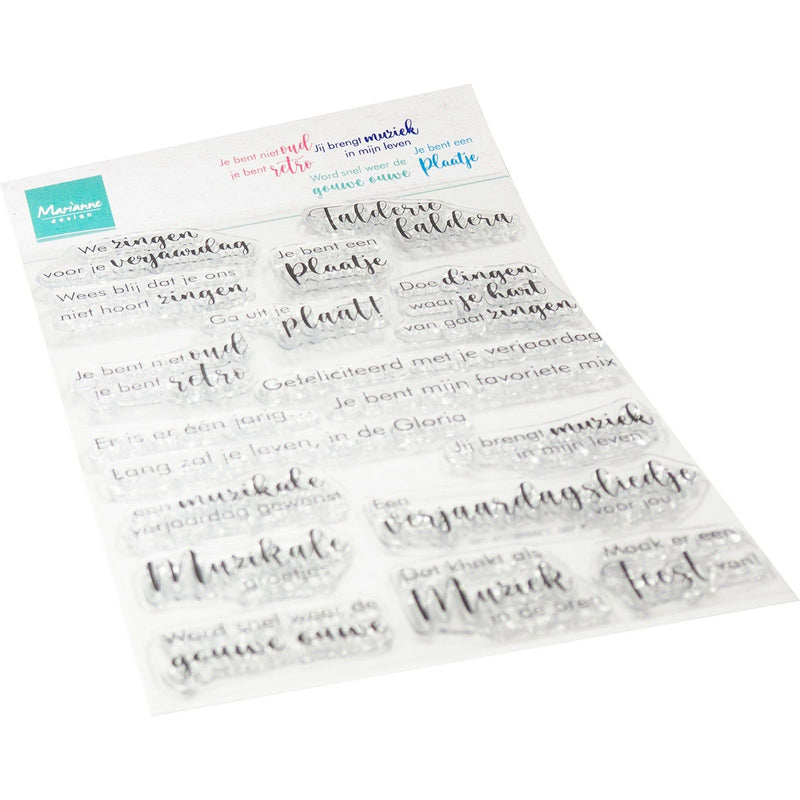 Je bent niet oud
je bent retro
Jij brengt muziek
in mijn leven
Word snel weer de
gouwe ouwe
Je bent een
Plaatje
Marianne
design
Falderie
faldera
We zingen
voor je verjaardag
Je bent een
Plaatje
Wees blij dat je ons
niet hoort zingen
Doe dingen
waar je hart
van gaat zingen
Ga uit je plaat!
Je bent niet oud
je bent retro
Gefeliciteerd met je verjaardag
Je bent mijn favoriete mix
Er is er één jarig...
Lang zal je leven, in de Gloria
Jij brengt muziek
in mijn leven
een muzikale
verjaardag gewenst
Een
verjaardagsliedje
voor jou
Muzikale
groetjes
Dat klinkt als
Muziek
in de oren
Maak er een
feest van!
Word snel weer de
gouwe ouwe